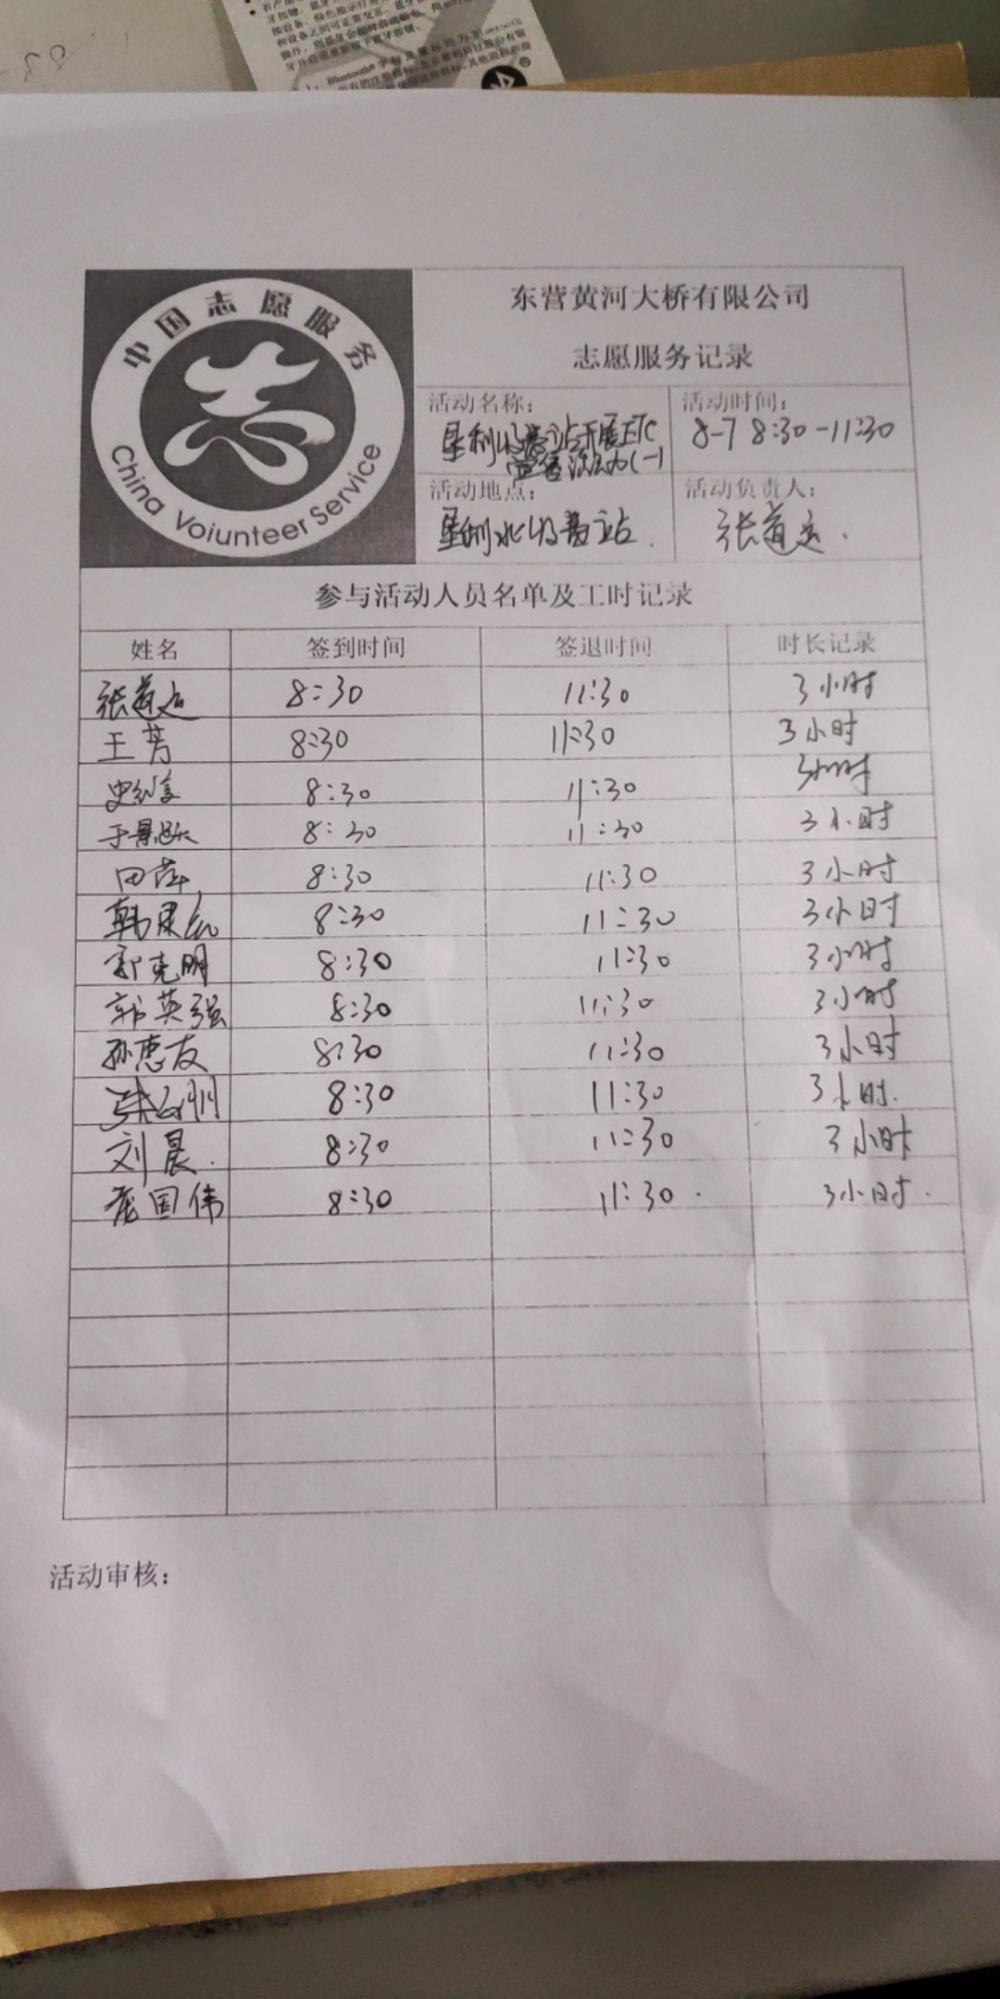 中国志愿服务
China Voiunteer Service
东营黄河大桥有限公司
志愿服务记录
活动名称：
垦利收费站开展ETC
活动时间：
8-7 8:30-11:30
活动地点：
垦利北收费站.
活动负责人：
张道远.
参与活动人员名单及工时记录
姓名 签到时间 签退时间 时长记录
张道远 8:30 11:30 3小时
王芳 8:30 11:30 3小时
8:30 11:30 3小时
8:30 11:30 3小时
田萍 8:30 11:30 3小时
8:30 11:30 3小时
郭克明 8:30 11:30 3小时
郭英强 8:30 11:30 3小时
孙惠友 8:30 11:30 3小时
8:30 11:30 3小时.
刘晨. 8:30 11:30 3小时
庞国伟 8:30 11:30. 3小时.
活动审核：